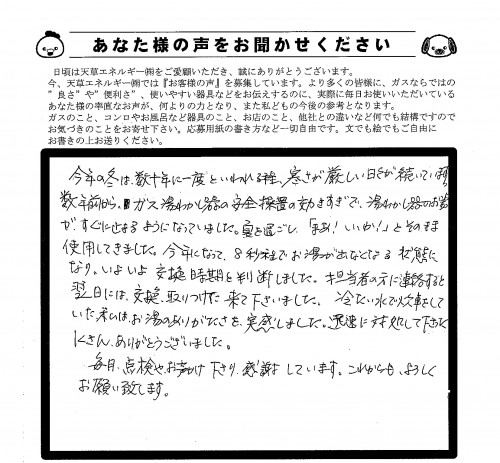 あなた様の声をお聞かせください
日頃は天草エネルギー㈱をご愛顧いただき、誠にありがとうございます。
今、天草エネルギー㈱では『お客様の声』を募集しています。より多くの皆様に、ガスならではの
“良さ”や“便利さ”、使いやすい器具などをお伝えするのに、実際に毎日お使いいただいている
あなた様の率直なお声が、何よりの力となり、また私どもの今後の参考となります。
ガスのこと、コンロやお風呂など器具のこと、お店のこと、他社との違いなど何でも結構ですので
お気づきのことをお寄せ下さい。応募用紙の書き方など一切自由です。文でも絵でもご自由に
お書きの上お送りください。
今年の冬は、数十年に一度といわれる程、寒さが厳しい日々が続いています。
数年前から、ガス湯わかし器の安全装置の効きすぎで、湯わかし器のお湯
がすぐに止まるようになっていました。夏を過ごし、「まあ!いいか!」とそのまま
使用してきました。今年になって、8秒程でお湯が出なくなる状態に
なり、いよいよ交換時期と判断しました。担当者の方に連絡すると
翌日には、交換、取りつけに来て下さいました。冷たい水で炊事をして
いた私は、お湯のありがたさを、実感しました。迅速に対処して下さった
Kさん、ありがとうございました。
毎月、点検やお声かけ下さり、感謝しています。これからも、よろしく
お願い致します。